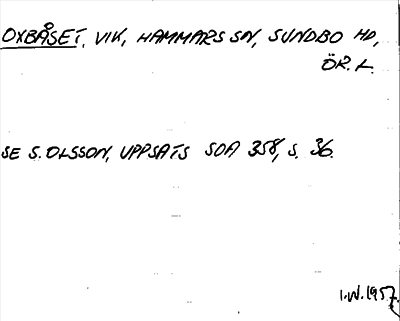 OXBÅSET, VIK, HAMMARS SN, SUNDBO HD,
ÖR. L.
SE S. OLSSON, UPPSATS SOA 358, S. 36.
I.W. 1957.